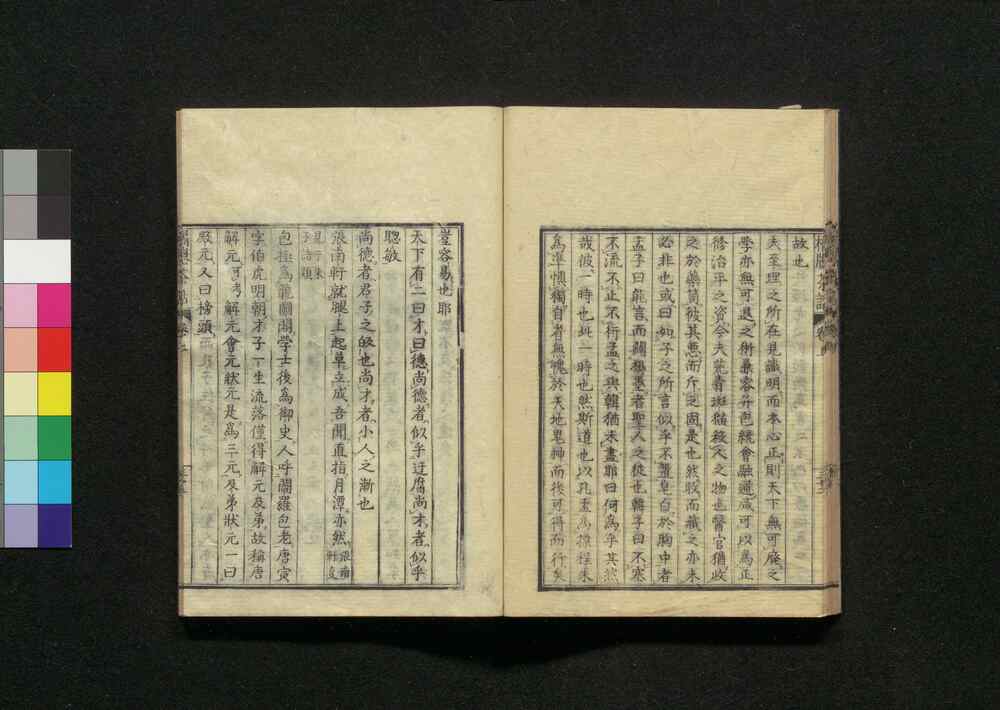 故也
夫至理之所在見識明而本心正則天下無可廢之
學亦無可退之術兼容并包統會融通咸可以為正
脩治平之資今夫莞青斑猫殺人之物也醫官猶收
之於藥籠彼其惡而斥之固是也然收而藏之亦未
必非也或曰如子之所言似乎不辨皂白於胸中者
孟子曰能言而闢楊墨者聖人之徒也韓子曰不塞
不流不止不行孟之與韓猶未盡耶曰何為乎其然
哉彼一時也此一時也然斯道也以孔孟為權程朱
為準慎獨自省無愧於天地鬼神而後可得而行矣
豈容易也耶
天下有二曰才曰德尚德者似乎迂腐尚才者似乎
聰敏
尚德者君子之的也尚才者小人之漸也
張南軒就腿上起草立成吾聞直指月潭亦然張南軒
包拯為龍圖閣學士後為御史人呼閻羅包老唐寅
字伯虎明朝才子一生流落僅得解元及第故稱唐
解元可考解元會元狀元是為三元及第狀元一曰
殿元又曰榜頭